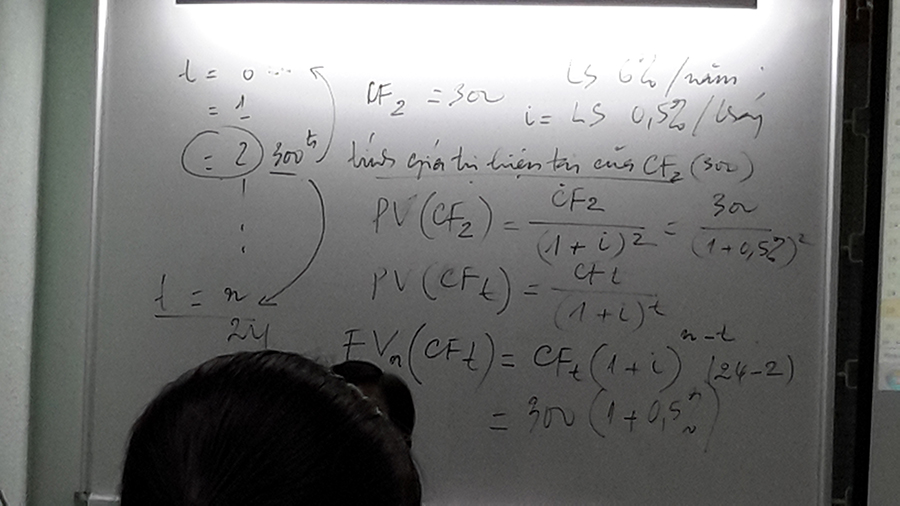 t = 0 ...
= 1
= 2 300
t = n
24
CF2 = 300
LS 6% /năm
i = LS 0,5% /tháng
tính giá trị hiện tại của CF2 (300)
PV(CF2) = CF2 / (1+i)^2 = 300 / (1+0,5%)^2
PV(CFt) = CFt / (1+i)^t
FVn(CFt) = CFt (1+i)^n-t
= 300 (1+0,5%)^(24-2)